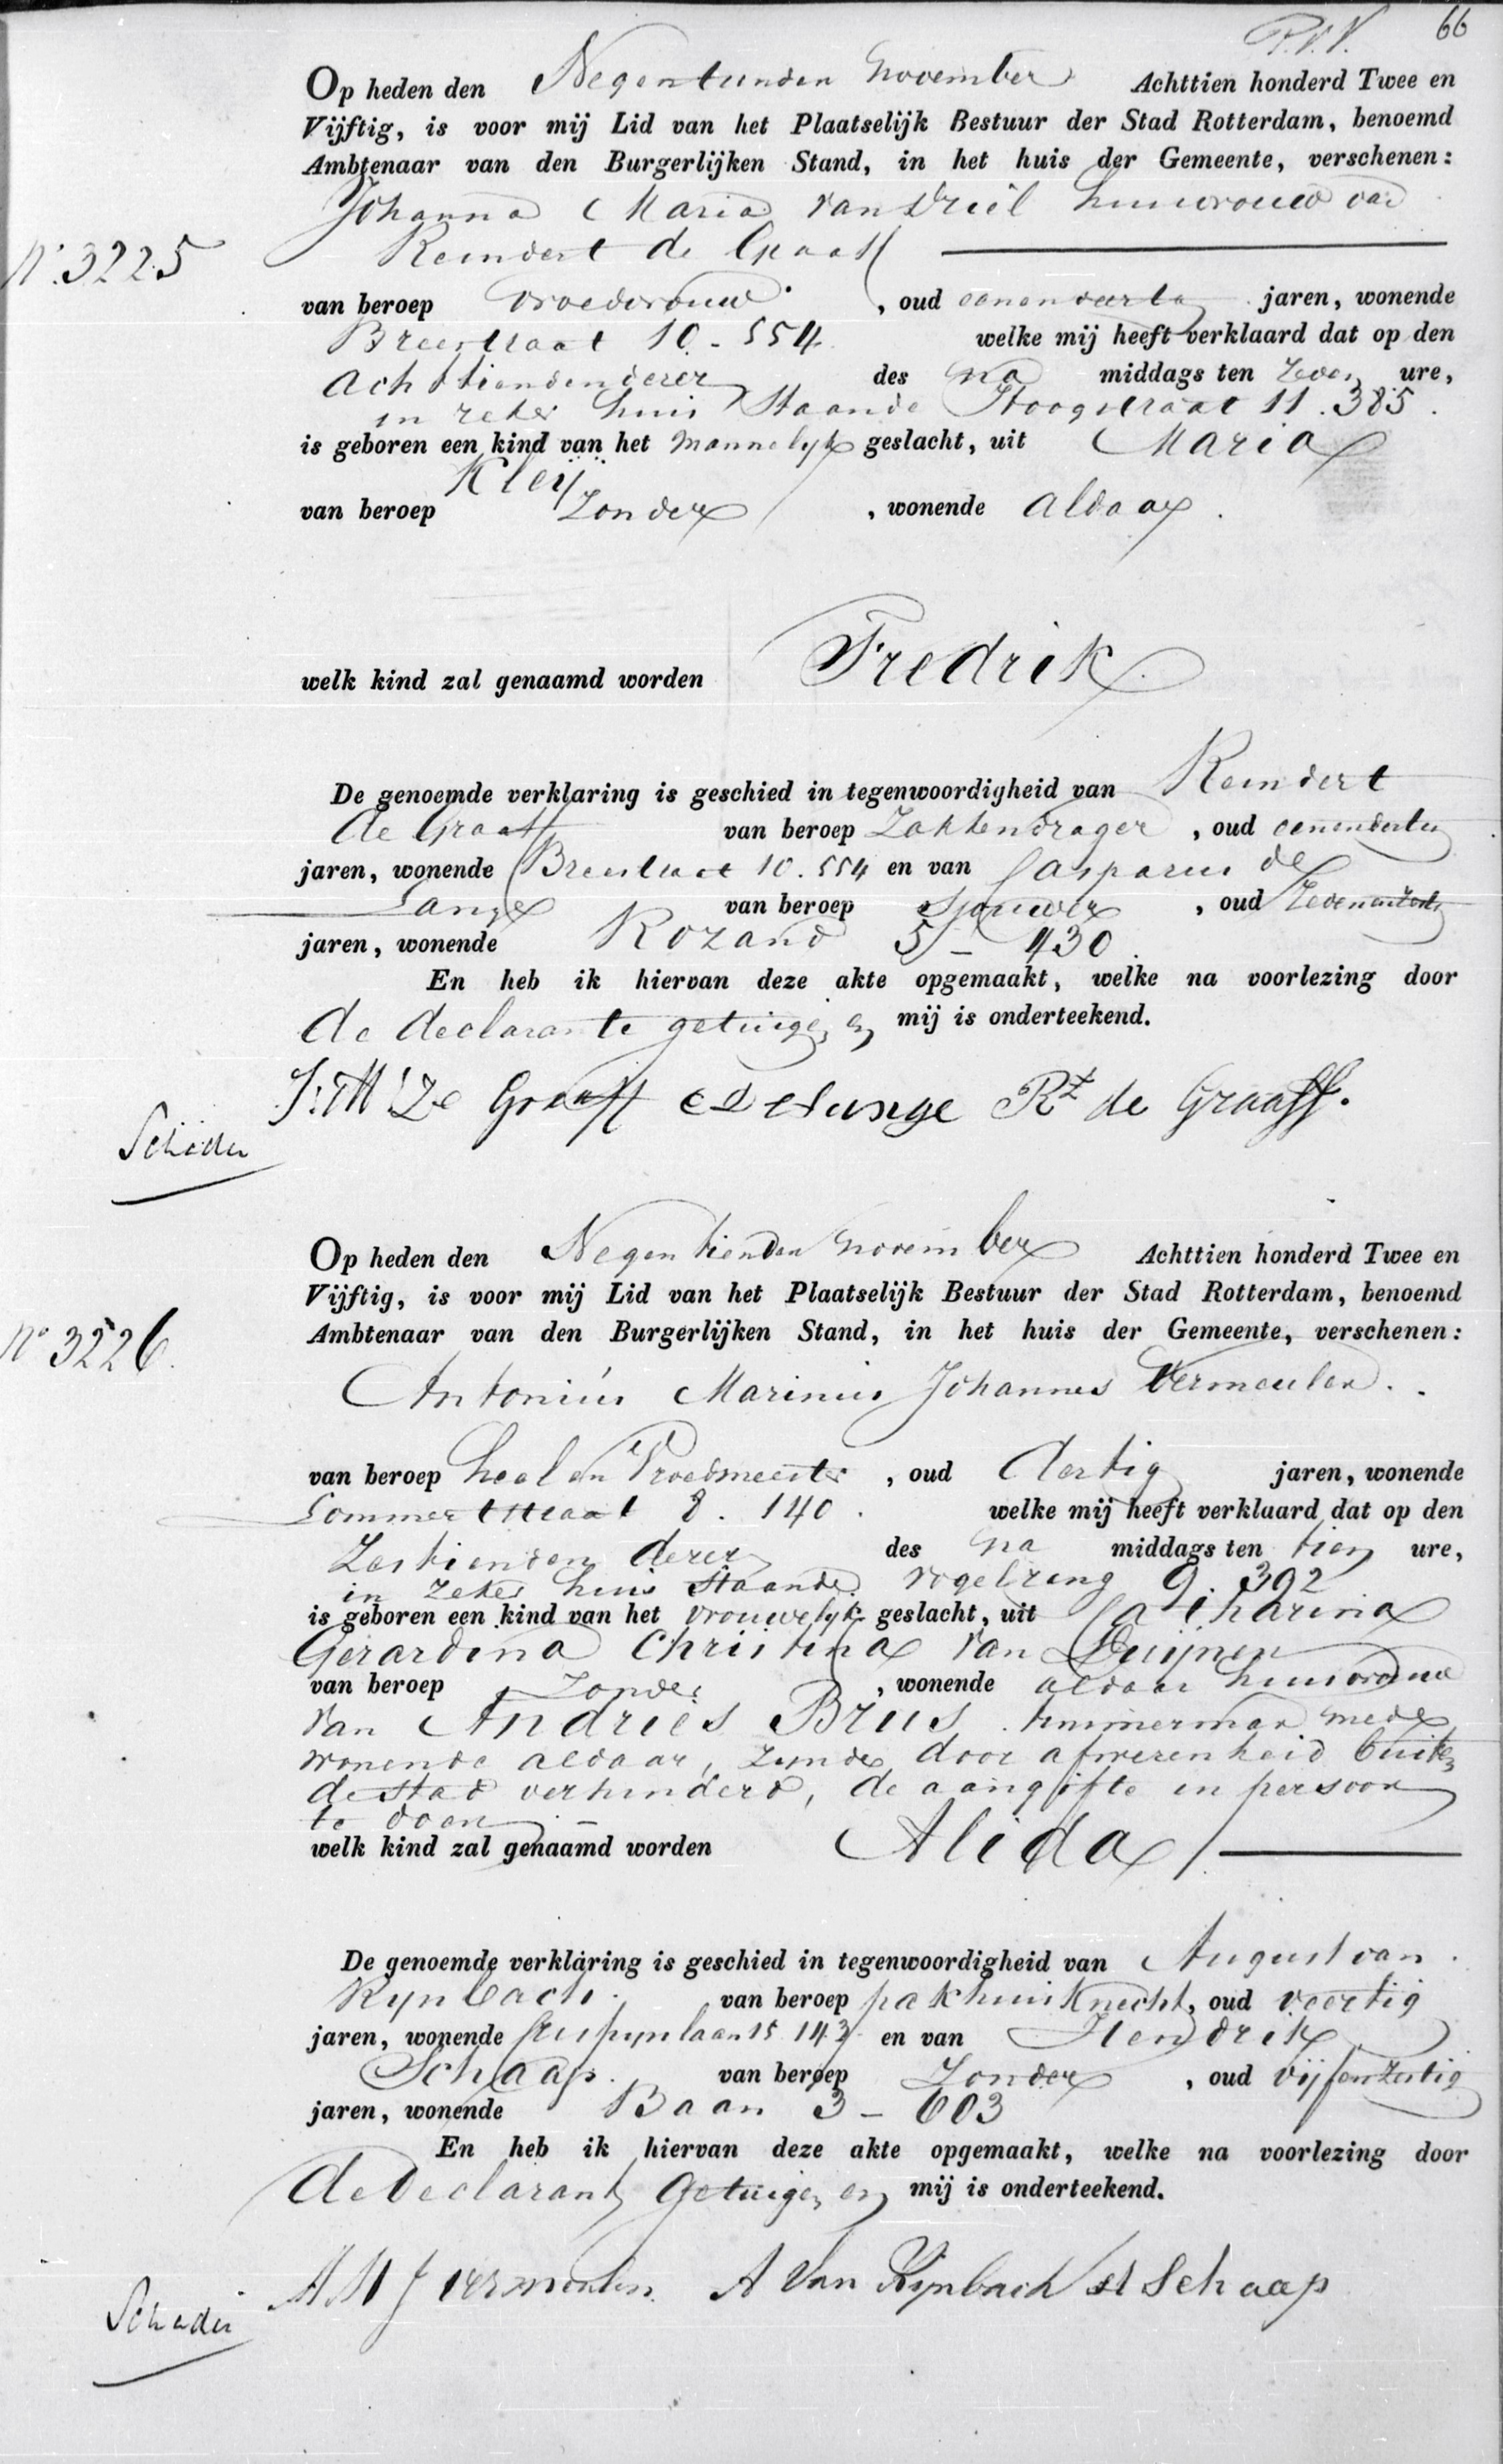 P.V.V. 66
Op heden den Negentienden November Achttien honderd Twee en
Vijftig, is voor mij Lid van het Plaatselijk Bestuur der Stad Rotterdam, benoemd
Ambtenaar van den Burgerlijken Stand, in het huis der Gemeente, verschenen:
Johanna Maria van Driel huisvrouw van
N° 3225 Reindert de Graaff
van beroep Vroedvrouw, oud eenendertig jaren, wonende
Breestraat 10 - 554 welke mij heeft verklaard dat op den
Achttiendendezer des na middags ten zeven ure,
in zeker huis staande Hoogstraat 11. 385.
is geboren een kind van het mannelyk geslacht, uit Maria
Kleij
van beroep Zonder, wonende aldaar.
welk kind zal genaamd worden Fredrik.
De genoemde verklaring is geschied in tegenwoordigheid van Reindert
de Graaff van beroep Zakkendrager, oud eenendertig
jaren, wonende Breestraat 10. 554 en van Casparus de
Lange van beroep Sjouwer, oud
jaren, wonende Rozand 5 - 430.
En heb ik hiervan deze akte opgemaakt, welke na voorlezing door
de declarante getuigen en mij is onderteekend.
J: M De Graaff C D Lange Rt de Graaff.
Schadee
Op heden den Negentienden November Achttien honderd Twee en
Vijftig, is voor mij Lid van het Plaatselijk Bestuur der Stad Rotterdam, benoemd
N° 3226. Ambtenaar van den Burgerlijken Stand, in het huis der Gemeente, verschenen:
Antonius Marinus Johannes Vermeulen.
van beroep heel en Vroedmeester, oud dertig jaren, wonende
Lommertstraat 8. 140. welke mij heeft verklaard dat op den
Zestienden dezer des na middags ten tien ure,
in zeker huis staande Vogelzang 9. 392
is geboren een kind van het vrouwelyk geslacht, uit Catharina
Gerardina Christina van Duijnen
van beroep Zonder, wonende aldaar huisvrouw
van Andries Brus. timmerman mede
wonende aldaar, zynde door afwezenheid buiten
de stad verhinderd, de aangifte in persoon
te doen -
welk kind zal genaamd worden Alida
De genoemde verklaring is geschied in tegenwoordigheid van August van
Rynbach. van beroep pakhuisknecht, oud veertig
jaren, wonende 15. 143 en van Hendrik
Schaap. van beroep Zonder, oud vijfenzestig
jaren, wonende Baan 3 - 603
En heb ik hiervan deze akte opgemaakt, welke na voorlezing door
de declarant, getuigen en mij is onderteekend.
A M J Vermeulen A Van Rijnbach H Schaap
Schadee